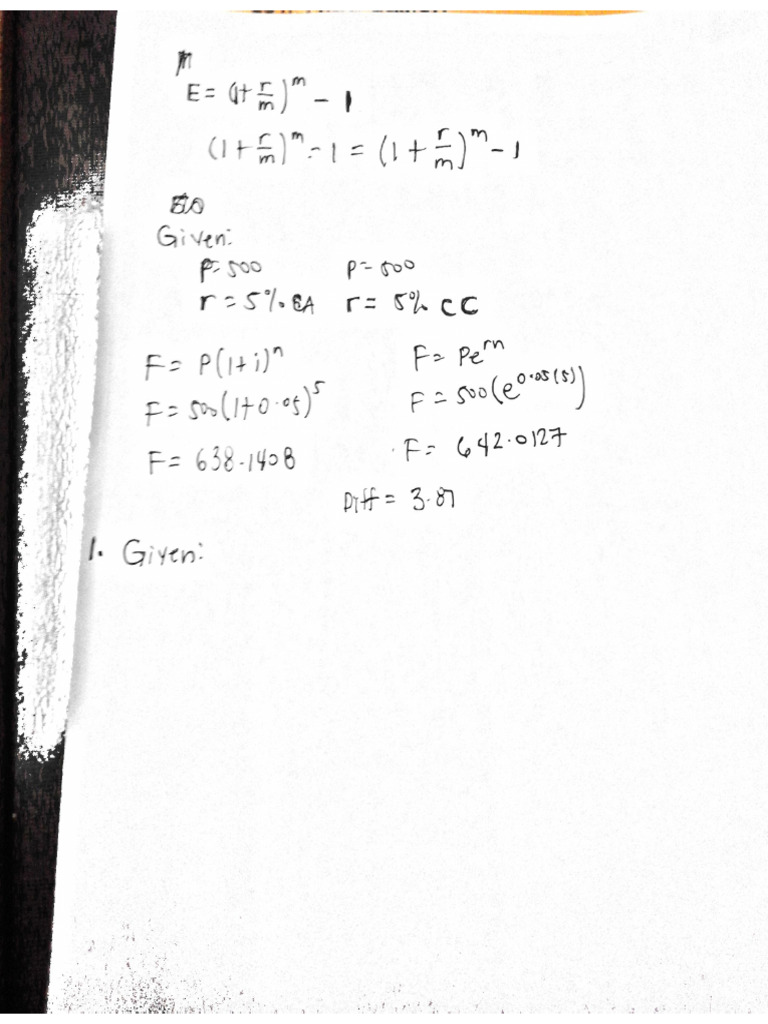 E = (1+ r/m)^m - 1
(1 + r/m)^m - 1 = (1 + r/m)^m - 1
Given:
P = 500 P = 500
r = 5% EA r = 5% CC
F = P(1+i)^n F = Pe^rn
F = 500(1+0.05)^5 F = 500(e^0.05(5))
F = 638.1408 F = 642.0127
Diff = 3.87
1. Given: